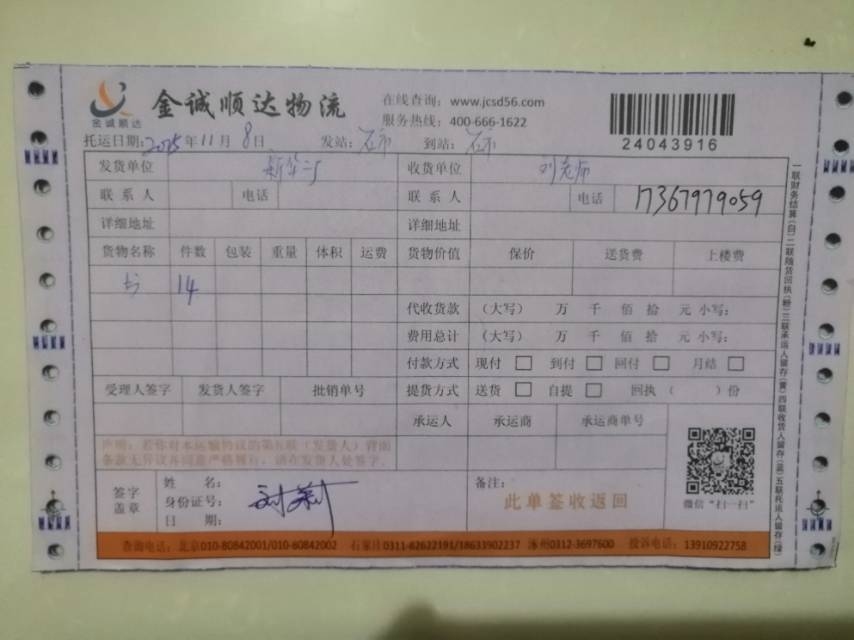 金诚顺达
金诚顺达物流
在线查询：www.jcsd56.com
服务热线：400-666-1622
24043916
托运日期：2025年11月8日 发站： 到站：
发货单位 收货单位 刘老师
联系人 电话 联系人 电话 17367979059
详细地址 详细地址
货物名称 件数 包装 重量 体积 运费 货物价值 保价 送货费 上楼费
书 14
代收货款 （大写） 万 千 佰 拾 元 小写：
费用总计 （大写） 万 千 佰 拾 元 小写：
付款方式 现付 □ 到付 □ 回付 □ 月结 □
受理人签字 发货人签字 批销单号 提货方式 送货 □ 自提 □ 回执（ ）份
承运人 承运商 承运商单号
声明：若你对本运输协议的第五联（发货人）背面
条款无异议并同意严格履行，请在发货人处签字。
签字
盖章
姓 名：
身份证号：
日 期：
备注：
此单签收返回
微信“扫一扫”
查询电话：北京010-80842001/010-60842002 石家庄0311-82622191/18633902237 涿州0312-3697600 投诉电话：13910922758
一联财务结算(白)二联随货回执(粉)三联承运人留存(黄)四联收货人留存(蓝)五联托运人留存(绿)